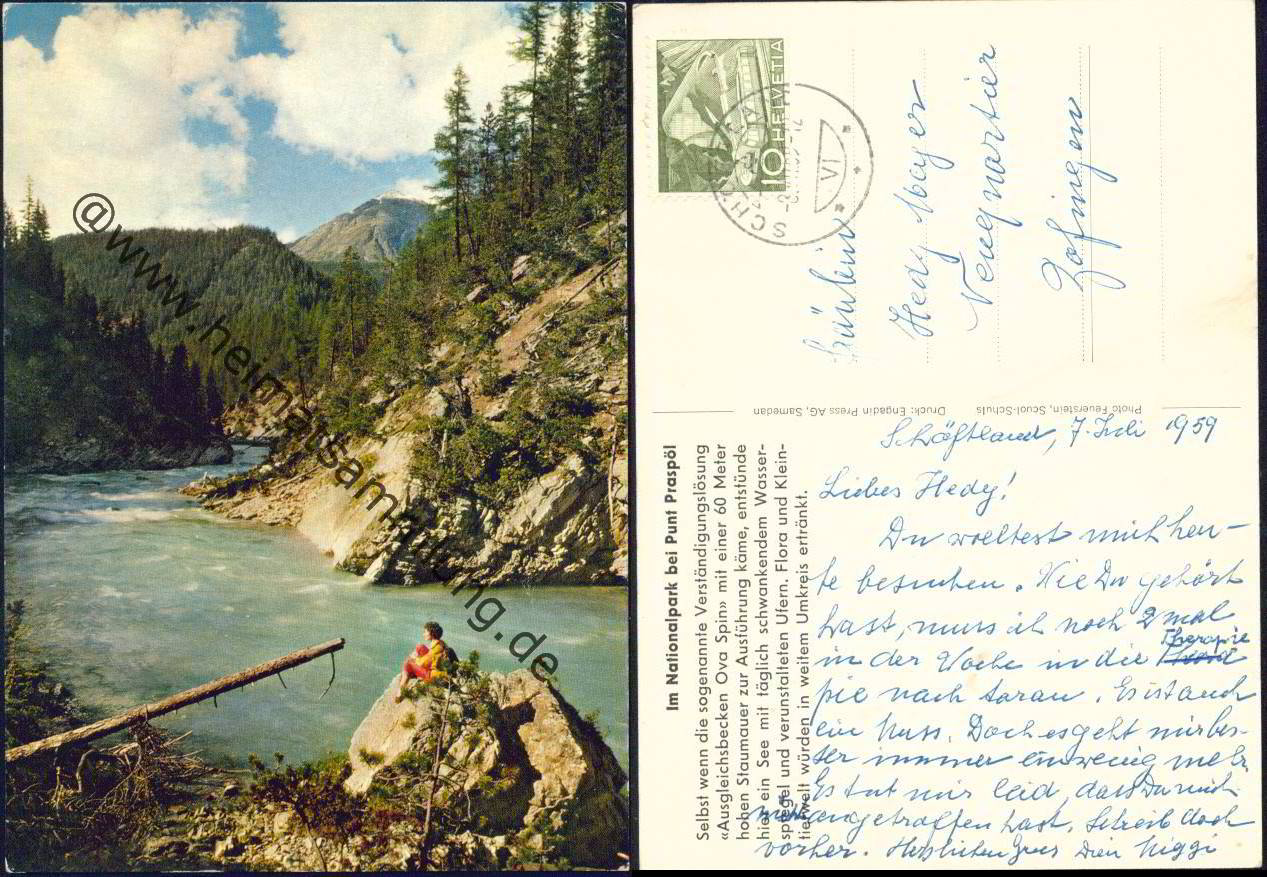 @www.heimatsammlung.de
HELVETIA
10
VI
Hedy
Zofingen
Photo Feuerstein, Scuol-Schuls
Druck: Engadin Press AG, Samedan
Im Nationalpark bei Punt Praspöl
Selbst wenn die sogenannte Verständigungslösung
«Ausgleichsbecken Ova Spin» mit einer 60 Meter
hohen Staumauer zur Ausführung käme, entstünde
hier ein See mit täglich schwankendem Wasser-
spiegel und verunstalteten Ufern. Flora und Klein-
tierwelt würden in weitem Umkreis ertränkt.
Schöftland, 7. Juli 1959
Liebes Hedy!
Du wolltest mich heu-
te besuchen. Wie Du gehört
hast, muss ich noch 2 mal
in der Woche in die Therapie
nach Aarau. Es ist auch
ein Muss. Doch es geht mir bes-
ser immer ein wenig mehr.
Es tut mir leid, dass Du mich
angetroffen hast. Schreib doch
vorher. Herzlichen Gruss Dein Niggi